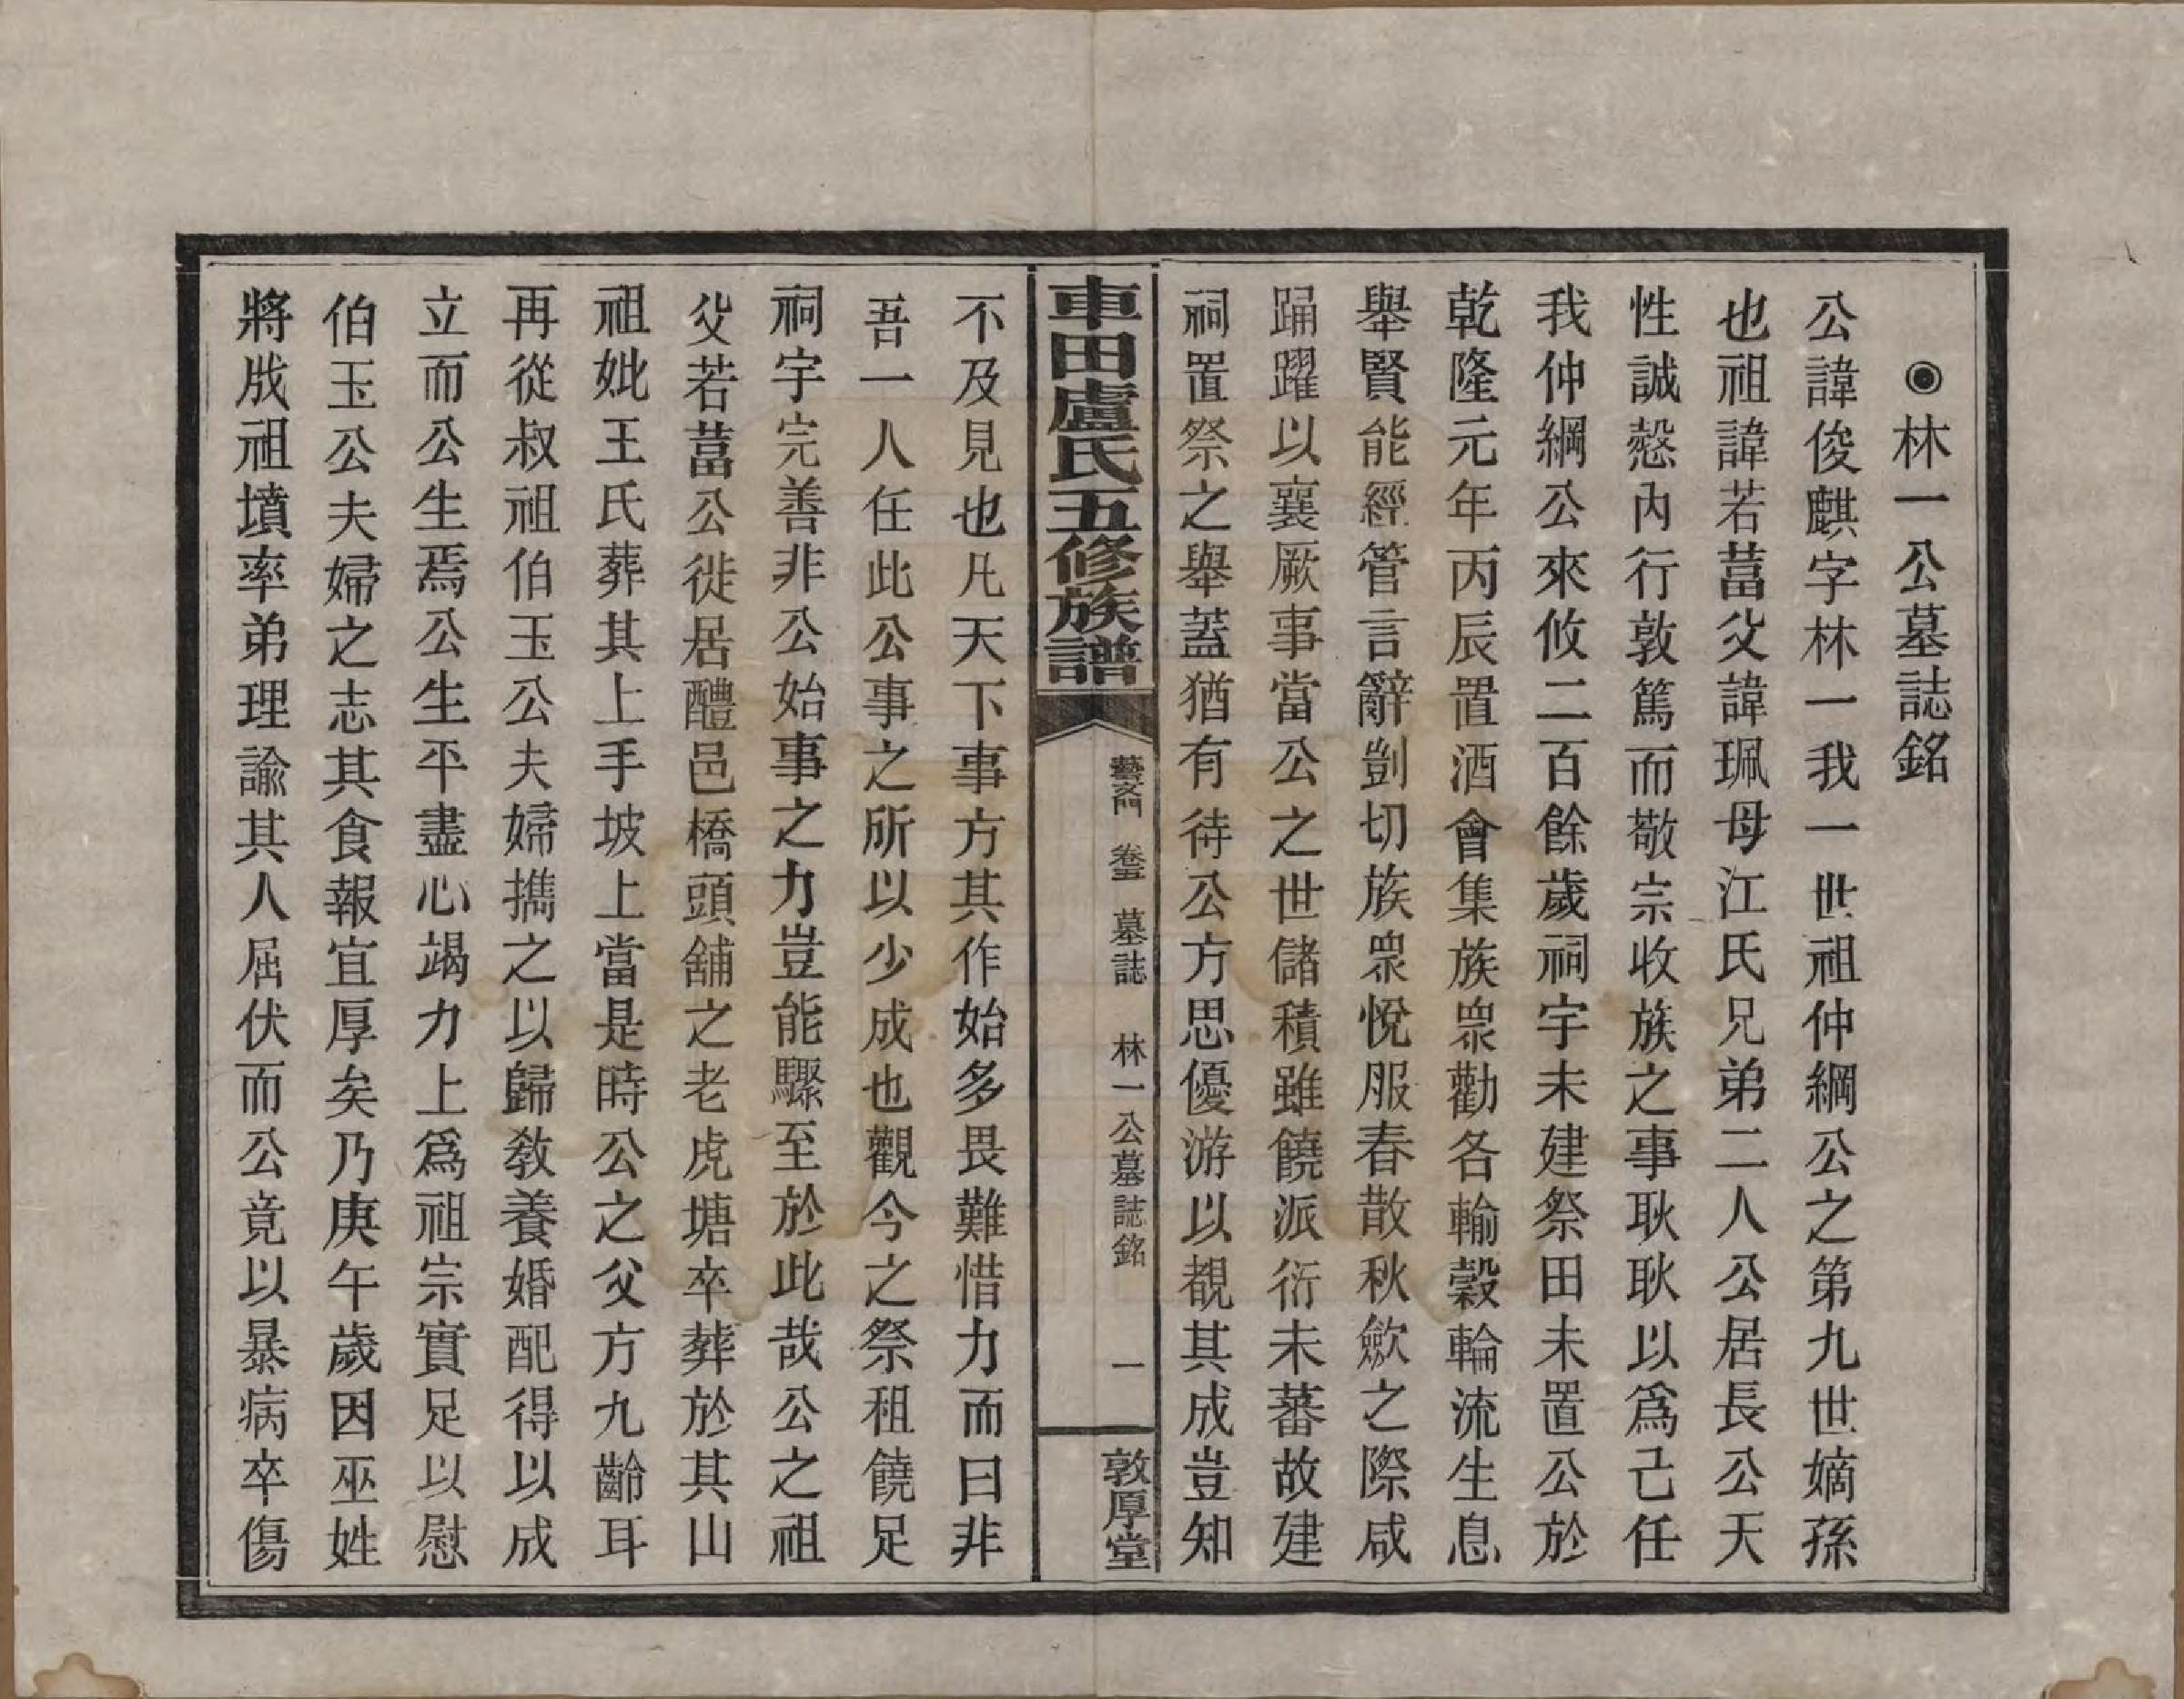 ◉林一公墓誌銘
公諱俊麒字林一我一世祖仲綱公之第九世嫡孫
也祖諱若菖父諱珮母江氏兄弟二人公居長公天
性誠慤內行敦篤而敬宗收族之事耿耿以爲己任
我仲綱公來攸二百餘歲祠宇未建祭田未置公於
乾隆元年丙辰置酒會集族衆勸各輸穀輪流生息
舉賢能經管言辭剴切族衆悅服春散秋歛之際咸
踊躍以襄厥事當公之世儲積雖饒派衍未蕃故建
祠置祭之舉蓋猶有待公方思優游以覩其成豈知
車田盧氏五修族譜
藝文門 卷五 墓誌 林一公墓誌銘 一
敦厚堂
不及見也凡天下事方其作始多畏難惜力而曰非
吾一人任此公事之所以少成也觀今之祭租饒足
祠宇完善非公始事之力豈能驟至於此哉公之祖
父若菖公徙居醴邑橋頭舖之老虎塘卒葬於其山
祖妣王氏葬其上手坡上當是時公之父方九齡耳
再從叔祖伯玉公夫婦攜之以歸教養婚配得以成
立而公生焉公生平盡心竭力上爲祖宗實足以慰
伯玉公夫婦之志其食報宜厚矣乃庚午歲因巫姓
將戕祖墳率弟理諭其人屈伏而公竟以暴病卒傷